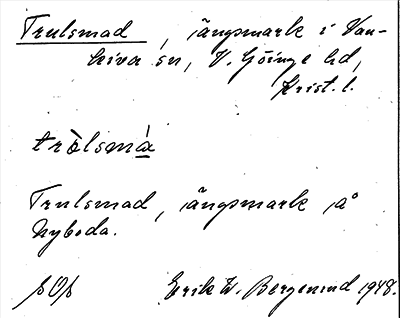 Trulsmad, ängsmark i Van-
kiva sn, V. Göinge hd,
Krist. l.
tròlsmá
Trulsmad, ängsmark på
Nyboda.
Erik W. Bergenud 1948.